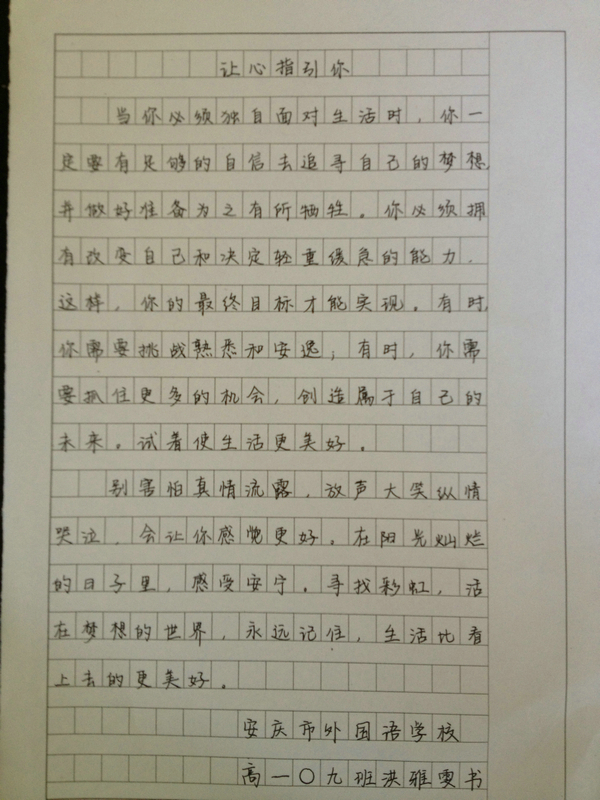 让心指引你
当你必须独自面对生活时，你一
定要有足够的自信去追寻自己的梦想，
并做好准备为之有所牺牲。你必须拥
有改变自己和决定轻重缓急的能力．
这样，你的最终目标才能实现。有时，
你需要挑战熟悉和安逸；有时，你需
要抓住更多的机会，创造属于自己的
未来。试着使生活更美好．
别害怕真情流露，放声大笑纵情
哭泣，会让你感觉更好。在阳光灿烂
的日子里，感受安宁。寻找彩虹，活
在梦想的世界，永远记住，生活比看
上去的更美好．
安庆市外国语学校
高一〇九班洪雅雯书